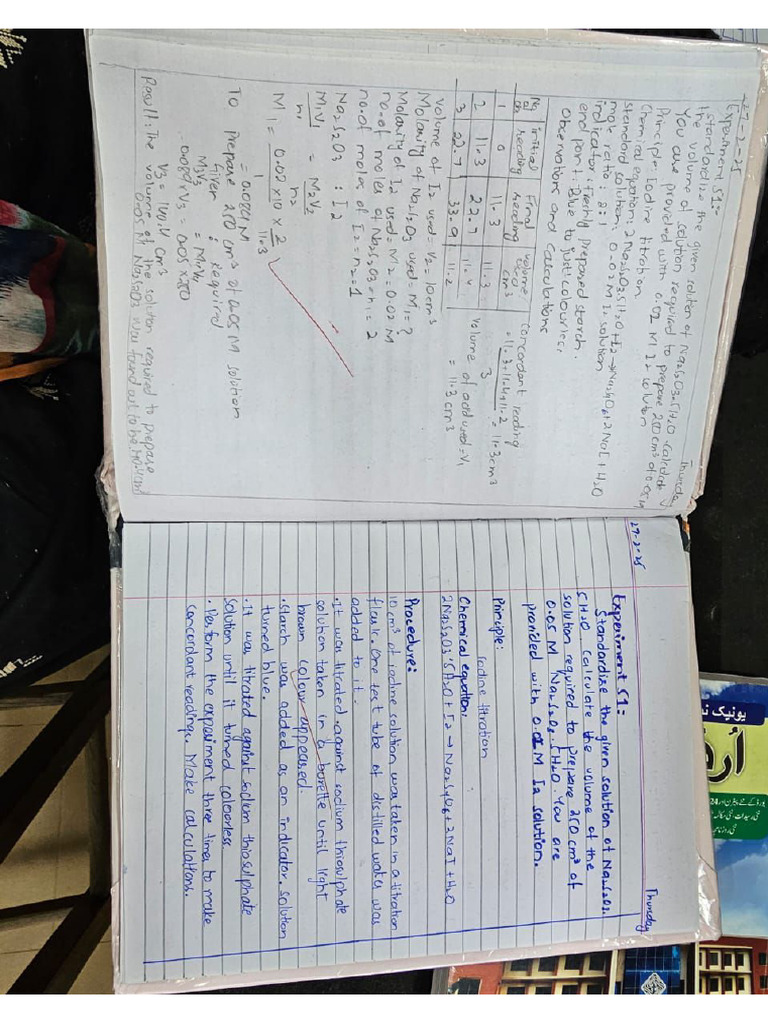 27-2-25 Thursday
Experiment 51:-
Standardize the given solution of Na2S2O3.5H2O. Calculate
the volume of solution required to prepare 250 cm3 of 0.05M
You are provided with 0.02 M I2 solution
Principle: Iodine titration
Chemical equation: 2Na2S2O3.5H2O+I2→Na2S4O6+2NaI+H2O
standard solution: 0.02 M I2 solution
mole ratio: 2:1
indicator: Freshly prepared starch.
end point: Blue to just colourless.
observations and calculations
No of obs initial reading Final reading volume used cm3
1 0 11.3 11.3
2 11.3 22.7 11.4
3 22.7 33.9 11.2
Concordant reading
= 11.3+11.4+11.2 / 3 = 11.3cm3
volume of used = V1
= 11.3 cm3
volume of I2 used = V2 = 10cm3
Molarity of Na2S2O3 used = M1 = ?
Molarity of I2 used = M2 = 0.02 M
no. of moles of Na2S2O3 = n1 = 2
no. of moles of I2 = n2 = 1
Na2S2O3 : I2
M1V1/n1 = M2V2/n2
M1 = 0.02×10/1 × 2/11.3
To prepare 250 cm3 of 0.05 M solution
Given : Required
M3V3 = M4V4
V3 = cm3
Result: The volume of the solution required to prepare
0.05M Na2S2O3 was found out to be
27-2-25 Thursday
Experiment 51:-
Standardize the given solution of Na2S2O3.
5H2O calculate the volume of the
solution required to prepare 250 cm3 of
0.05 M Na2S2O3.5H2O. You are
provided with M I2 solution.
Principle:
Iodine titration
Chemical equation:
2Na2S2O3.5H2O+I2→Na2S4O6+2NaI+H2O
Procedure:
10 cm3 of iodine solution was taken in a titration
flask. One test tube of distilled water was
added to it.
• It was titrated against sodium thiosulphate
solution taken in a burette until light
brown colour appeared.
• Starch was added as an indicator. solution
turned blue.
• It was titrated against sodium thiosulphate
solution until it turned colorless
• Perform the experiment three times to make
concordant reading. Make calculations.
یونیک